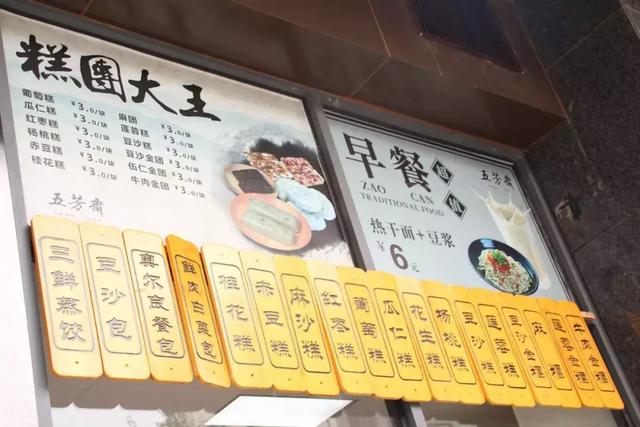 糕團大王
葡萄糕 ¥3.0/块
瓜仁糕 ¥3.0/块
红枣糕 ¥3.0/块
杨桃糕 ¥3.0/块
赤豆糕 ¥3.0/块
桂花糕 ¥3.0/块
麻团 ¥3.0/块
莲蓉糕 ¥3.0/块
豆沙糕 ¥3.0/块
豆沙金团 ¥3.0/块
伍仁金团 ¥3.0/块
牛肉金团 ¥3.0/块
五芳斋
早餐
超值
ZAO CAN
TRADITIONAL FOOD
热干面+豆浆
¥6元
五芳斋
三鲜蒸饺
豆沙包
奥尔良餐包
鲜肉白菜包
桂花糕
赤豆糕
麻沙糕
红枣糕
葡萄糕
瓜仁糕
花生糕
杨桃糕
豆沙糕
莲蓉糕
豆沙金团
麻团
莲蓉金团
牛肉金团